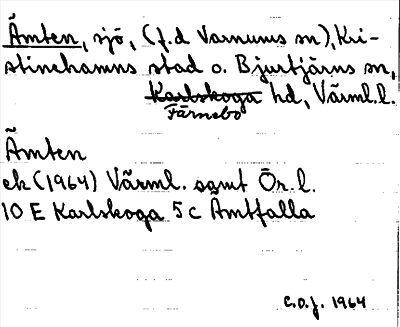 Ämten, sjö, (f.d Varnums sn), Kri-
stinehamns stad o. Bjurtjärns sn,
Karlskoga hd, Värml.l.
Färnebo
Ämten
ek (1964) Värml. samt Ör. l.
10 E Karlskoga 5c Ämtfalla
C.O.J. 1964